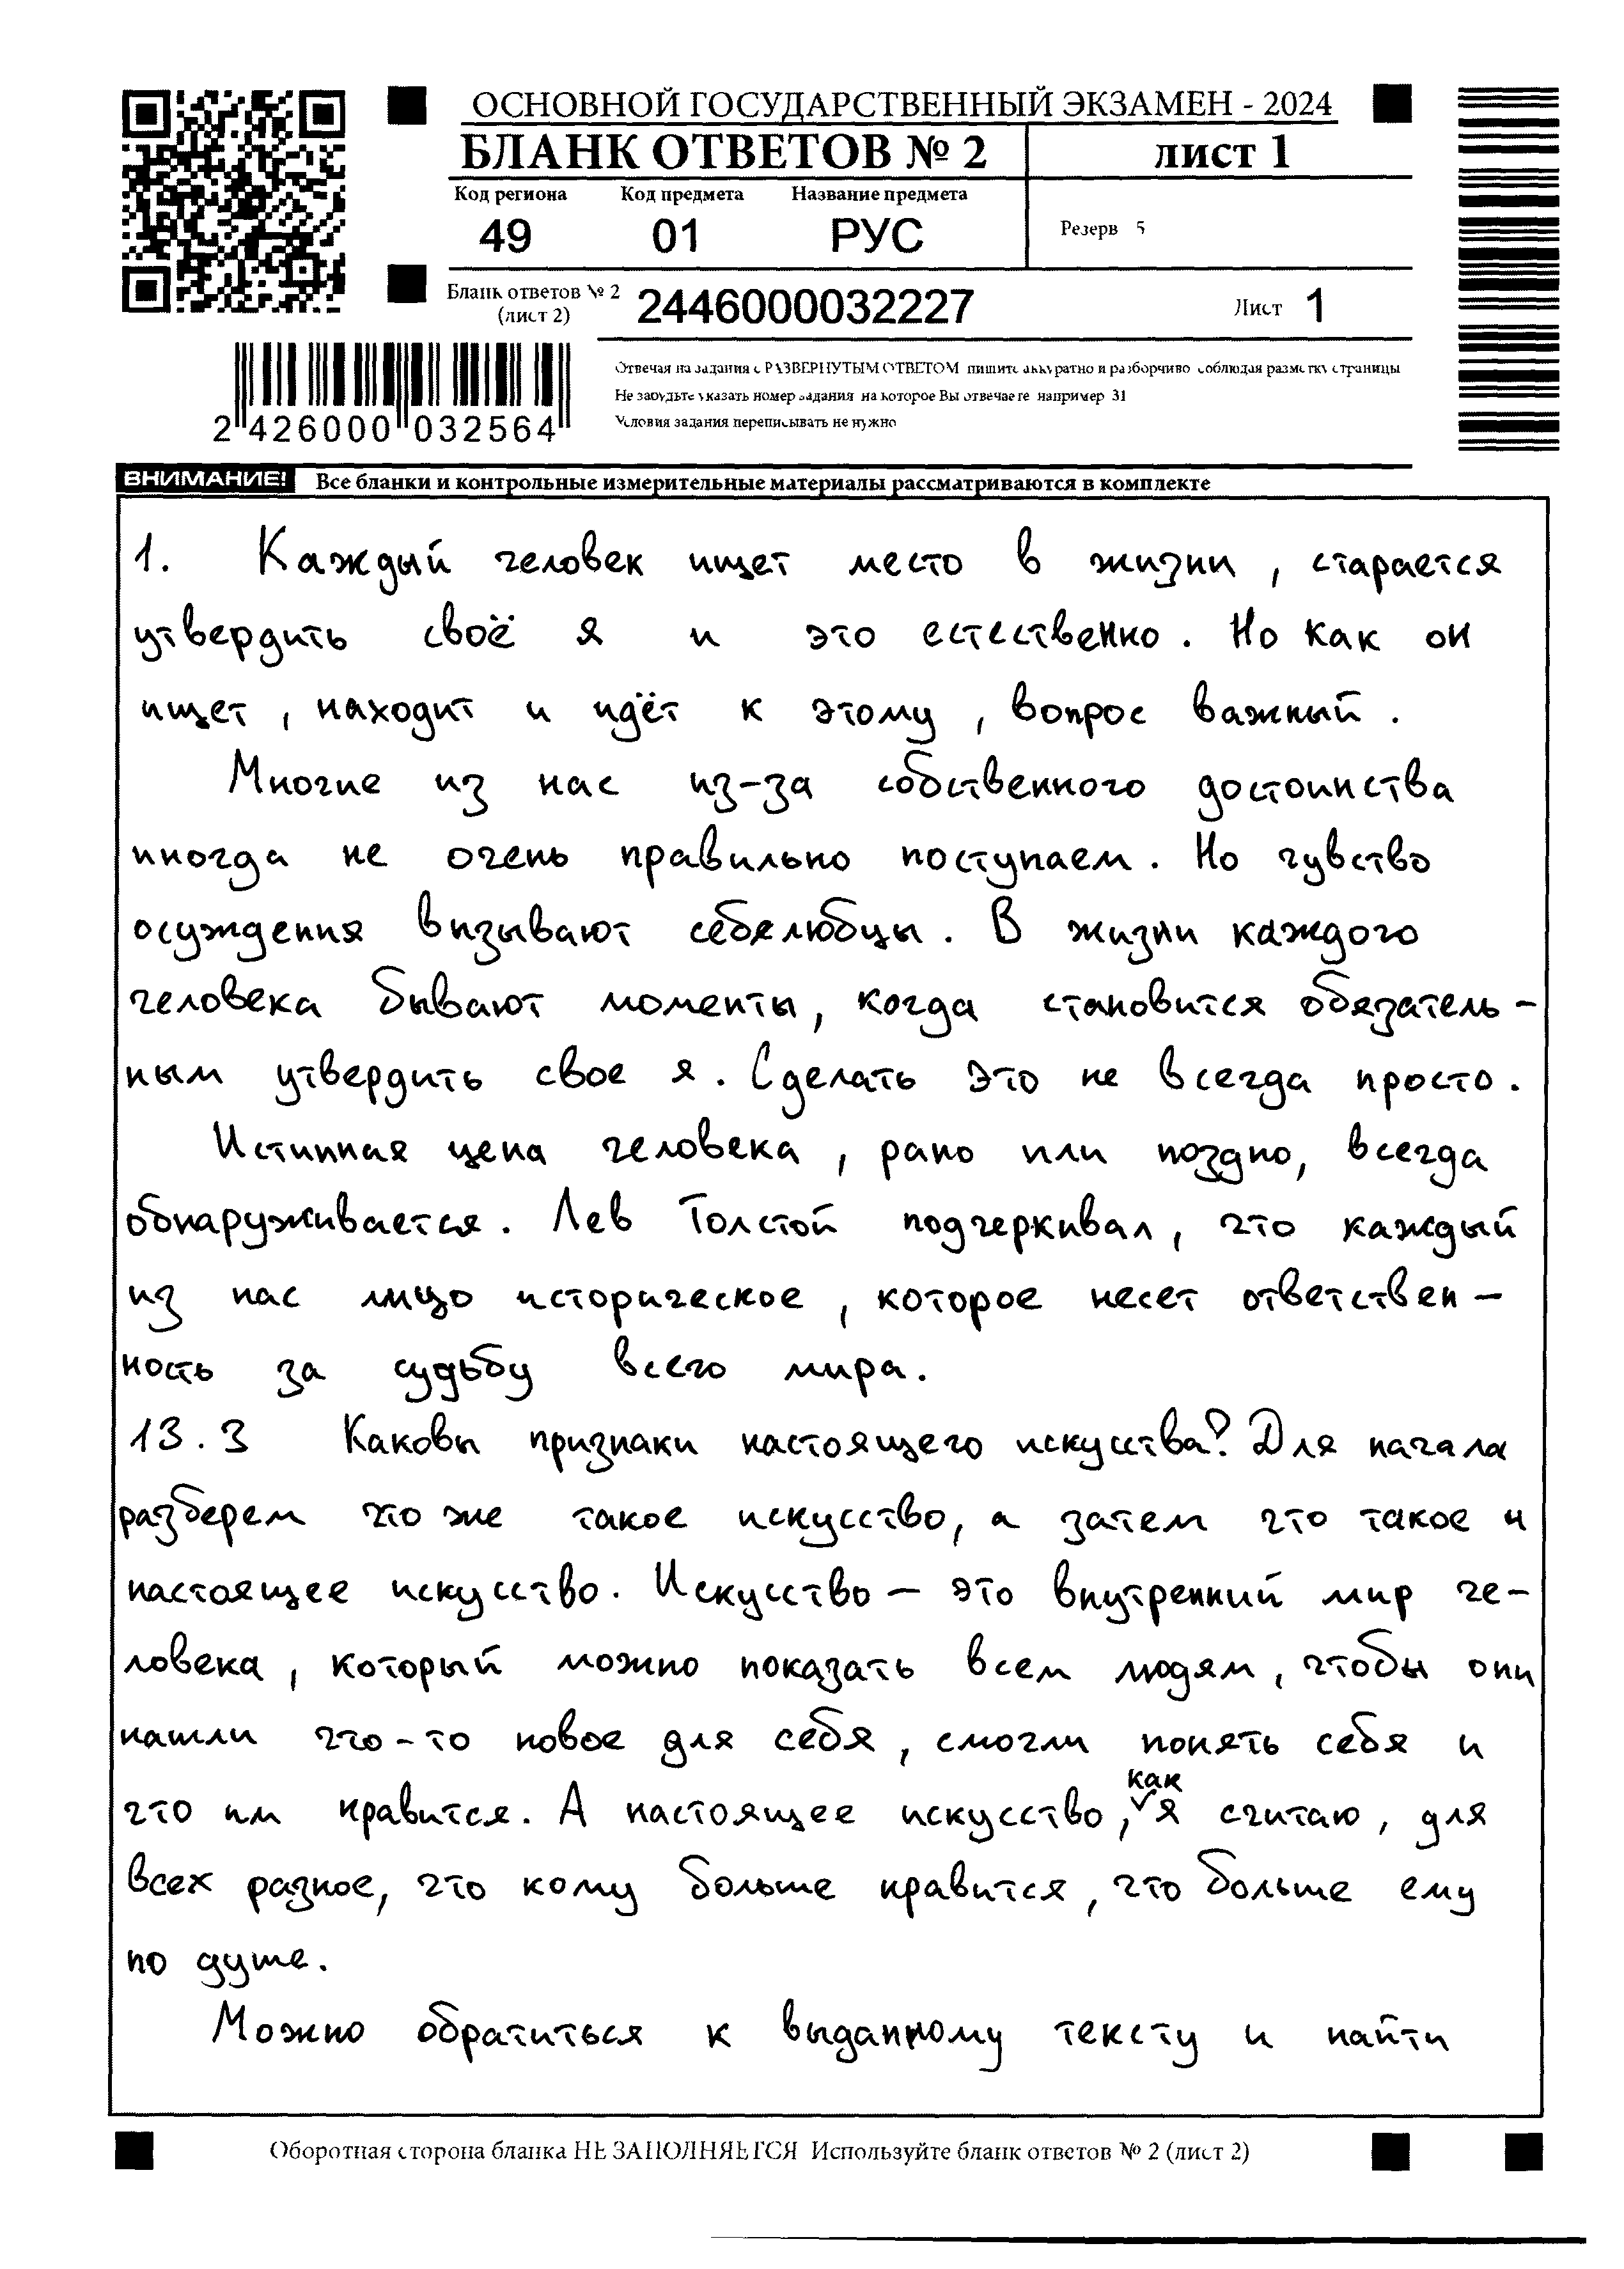 ОСНОВНОЙ ГОСУДАРСТВЕННЫЙ ЭКЗАМЕН - 2024
БЛАНК ОТВЕТОВ № 2 лист 1
Код региона Код предмета Название предмета
49 01 РУС
Резерв 5
Бланк ответов № 2
(лист 2)
2446000032227
Лист 1
2 426000 032564
Отвечая на задания с РАЗВЕРНУТЫМ ОТВЕТОМ пишите аккуратно и разборчиво соблюдая разметку страницы
Не забудьте указать номер задания на которое Вы отвечаете например 31
Условия задания переписывать не нужно
ВНИМАНИЕ! Все бланки и контрольные измерительные материалы рассматриваются в комплекте
1. Каждый человек ищет место в жизни, старается
утвердить своё я и это естественно. Но как он
ищет, находит и идёт к этому, вопрос важный.
Многие из нас из-за собственного достоинства
иногда не очень правильно поступаем. Но чувство
осуждения визывают себялюбцы. В жизни каждого
человека бывают моменты, когда становится обязатель-
ным утвердить свое я. Сделать это не всегда просто.
Истинная цена человека, рано или поздно, всегда
обнаруживается. Лев Толстой подчеркивал, что каждый
из нас лицо историческое, которое несет ответствен-
ность за судьбу всего мира.
13.3 Каковы признаки настоящего искусства? Для начала
разберем что же такое искусство, а затем что такое и
настоящее искусство. Искусство - это внутренний мир че-
ловека, который можно показать всем людям, чтобы они
нашли что-то новое для себя, смогли понять себя и
что им нравится. А настоящее искусство, как я считаю, для
всех разное, что кому больше нравится, что больше ему
по душе.
Можно обратиться к выданному тексту и найти
Оборотная сторона бланка НЕ ЗАПОЛНЯЕТСЯ Используйте бланк ответов № 2 (лист 2)